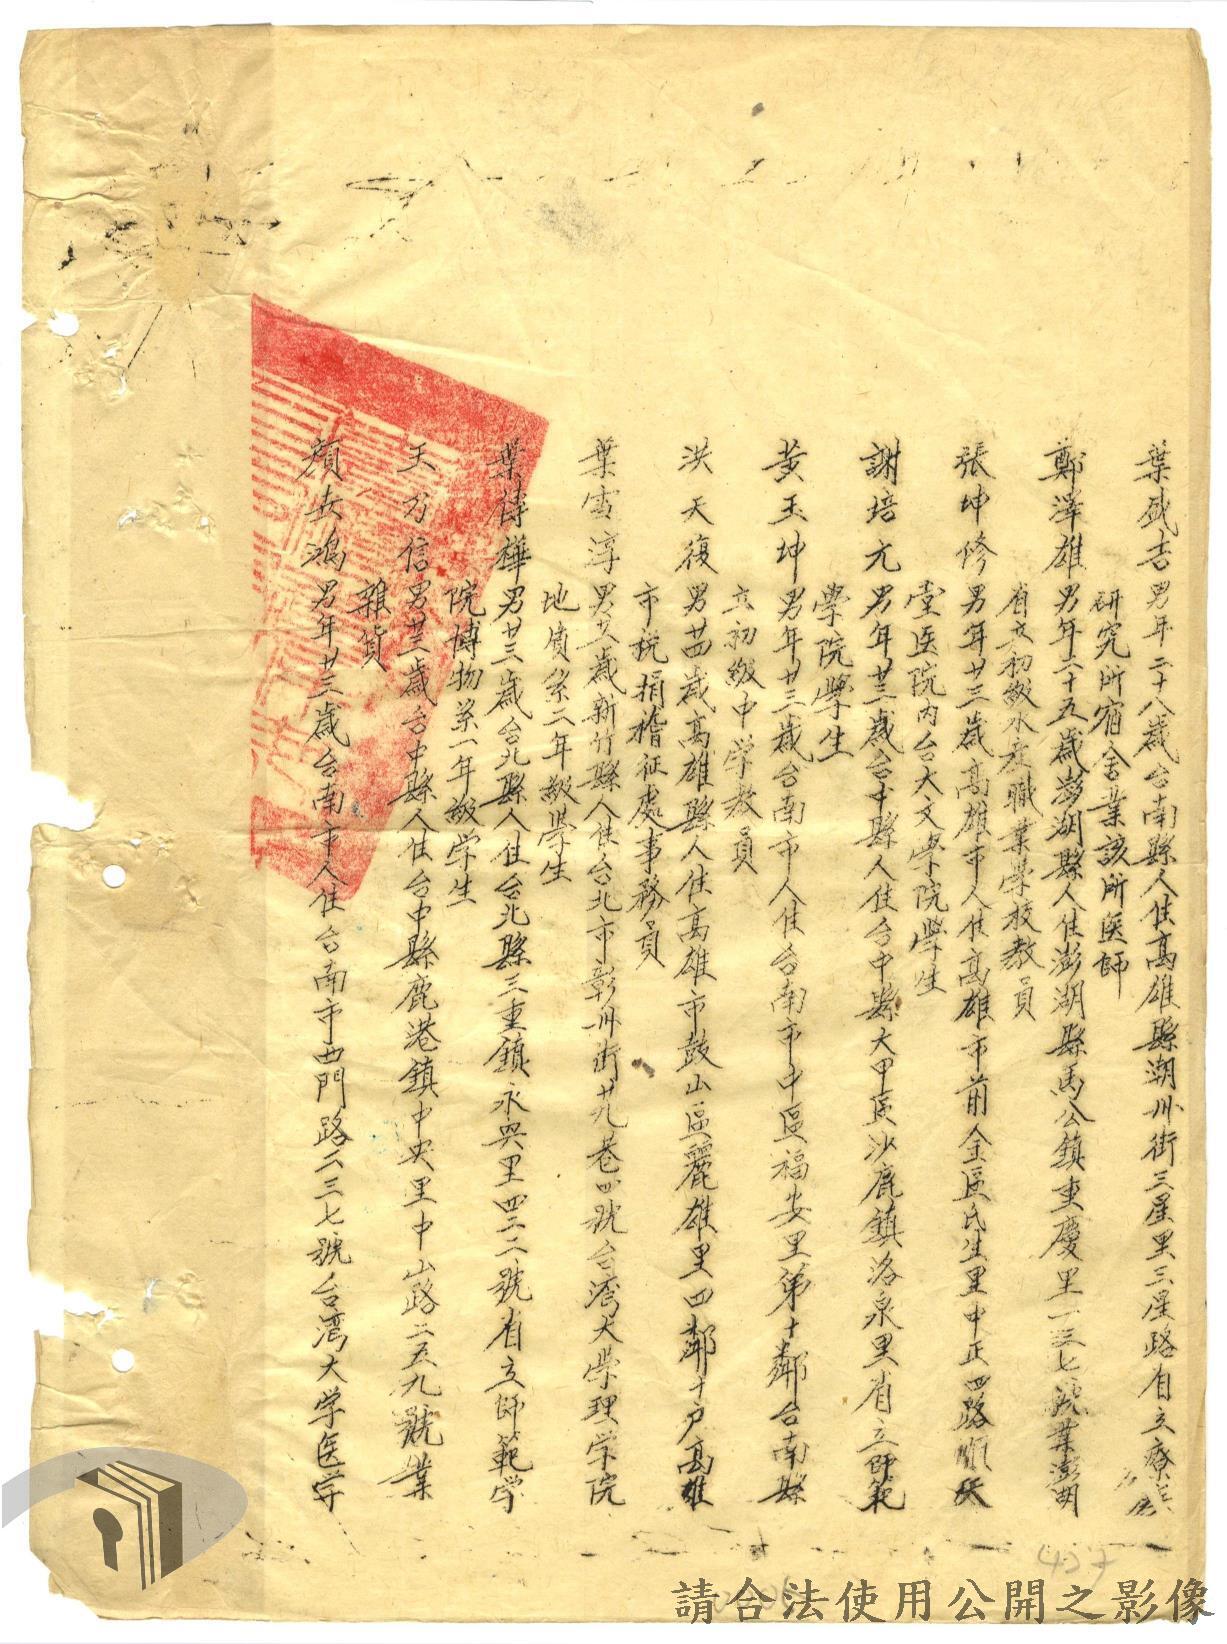 葉盛吉男年二十八歲台南縣人住高雄縣潮州街三星里三星路省立療疾
研究所宿舍業該所医師
鄭澤雄男年二十五歲澎湖縣人住澎湖縣馬公鎮重慶里一三七號業澎湖
省立初級水產職業學校教員
張坤修男年廿三歲高雄市人住高雄市前金區民生里中正四路順天
堂医院內台大文學院學生
謝培元男年廿三歲台中縣人住台中縣大甲區沙鹿鎮洛泉里省立師範
學院學生
黃玉坤男年廿三歲台南市人住台南市中區福安里第十鄰台南縣
立初級中学教員
洪天復男廿四歲高雄縣人住高雄市鼓山區麗雄里四鄰十户高雄
市稅捐稽征處事務員
葉雪淳男廿歲新竹縣人住台北市彰州街廿九巷四號台湾大學理学院
地質系二年級學生
葉傳樺男廿三歲台北縣人住台北縣三重鎮永興里四二二號省立師範学
院博物系一年級学生
王子信男廿三歲台中縣人住台中縣鹿港鎮中央里中山路二五九號業
雜貨
顏世鴻男年廿三歲台南市人住台南市西門路二三七號台湾大学医学
請合法使用公開之影像